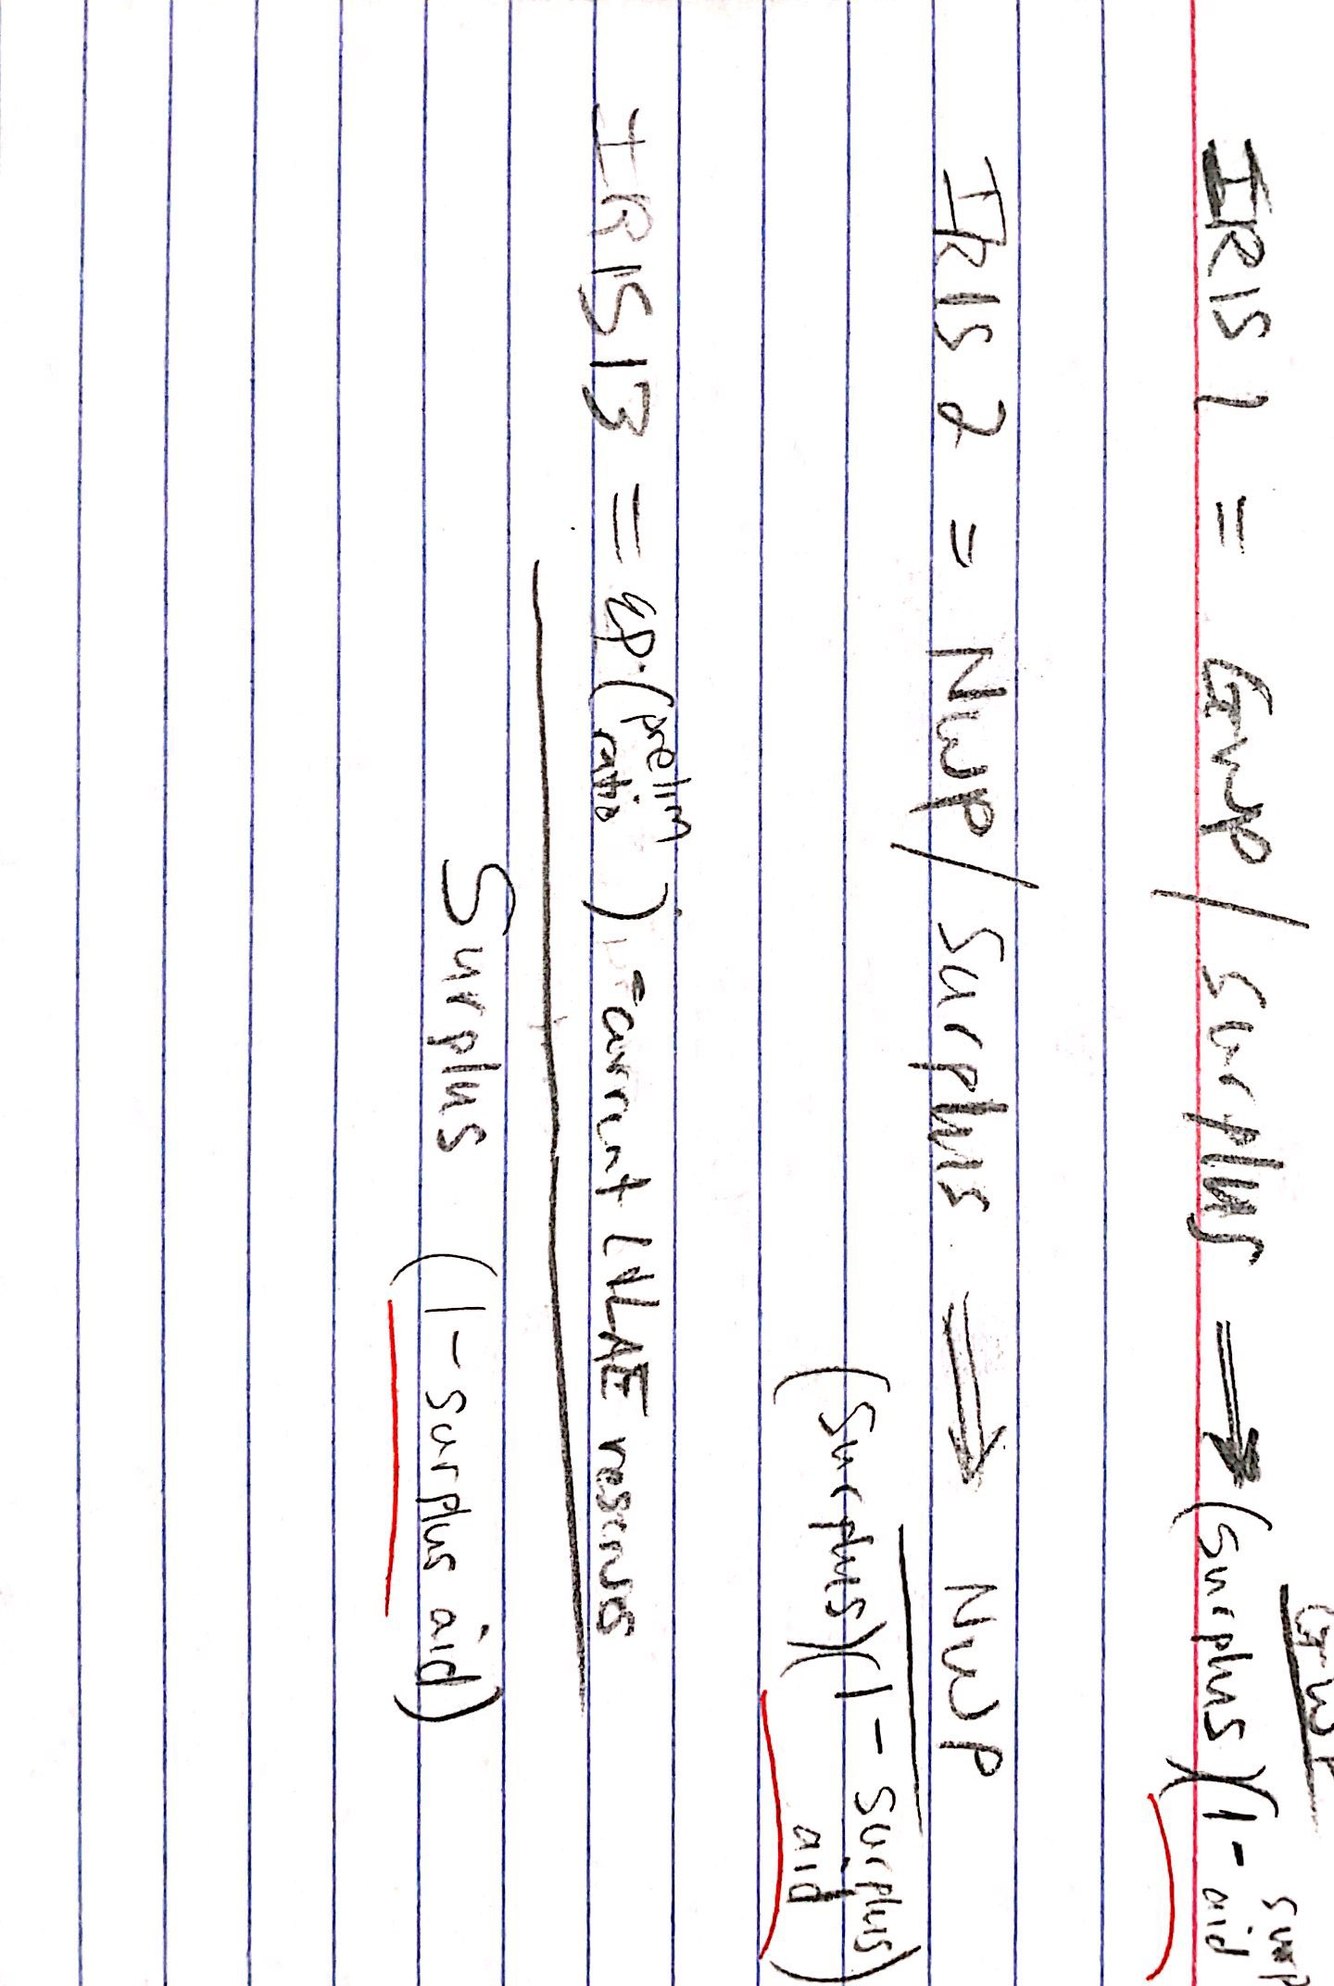 GWP
IRIS 1 = GWP / Surplus ⟹ (Surplus)(1 - surp aid
IRIS 2 = NWP / Surplus ⟹ NWP
(Surplus)(1 - Surplus aid)
IRIS 13 = EP · (prelim ratio) - current L/LAE reserves
Surplus (1 - surplus aid)